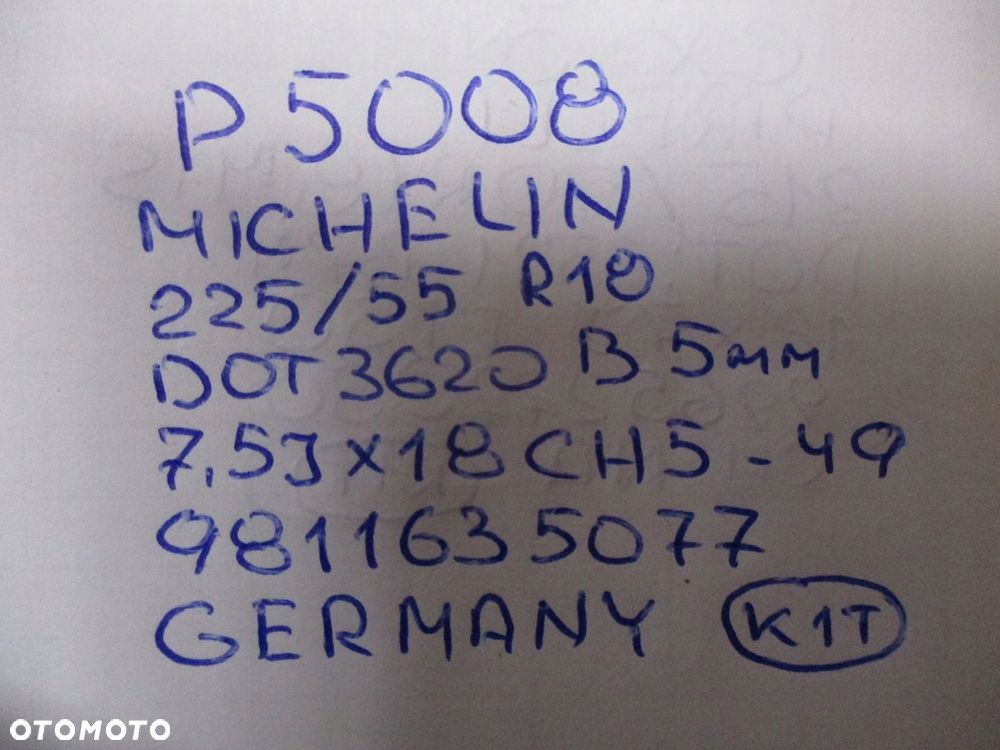 P 5008
MICHELIN
225/55 R18
DOT 3620 B 5mm
7.5J x 18 CH5 - 49
9811635077
GERMANY K1T
OTOMOTO